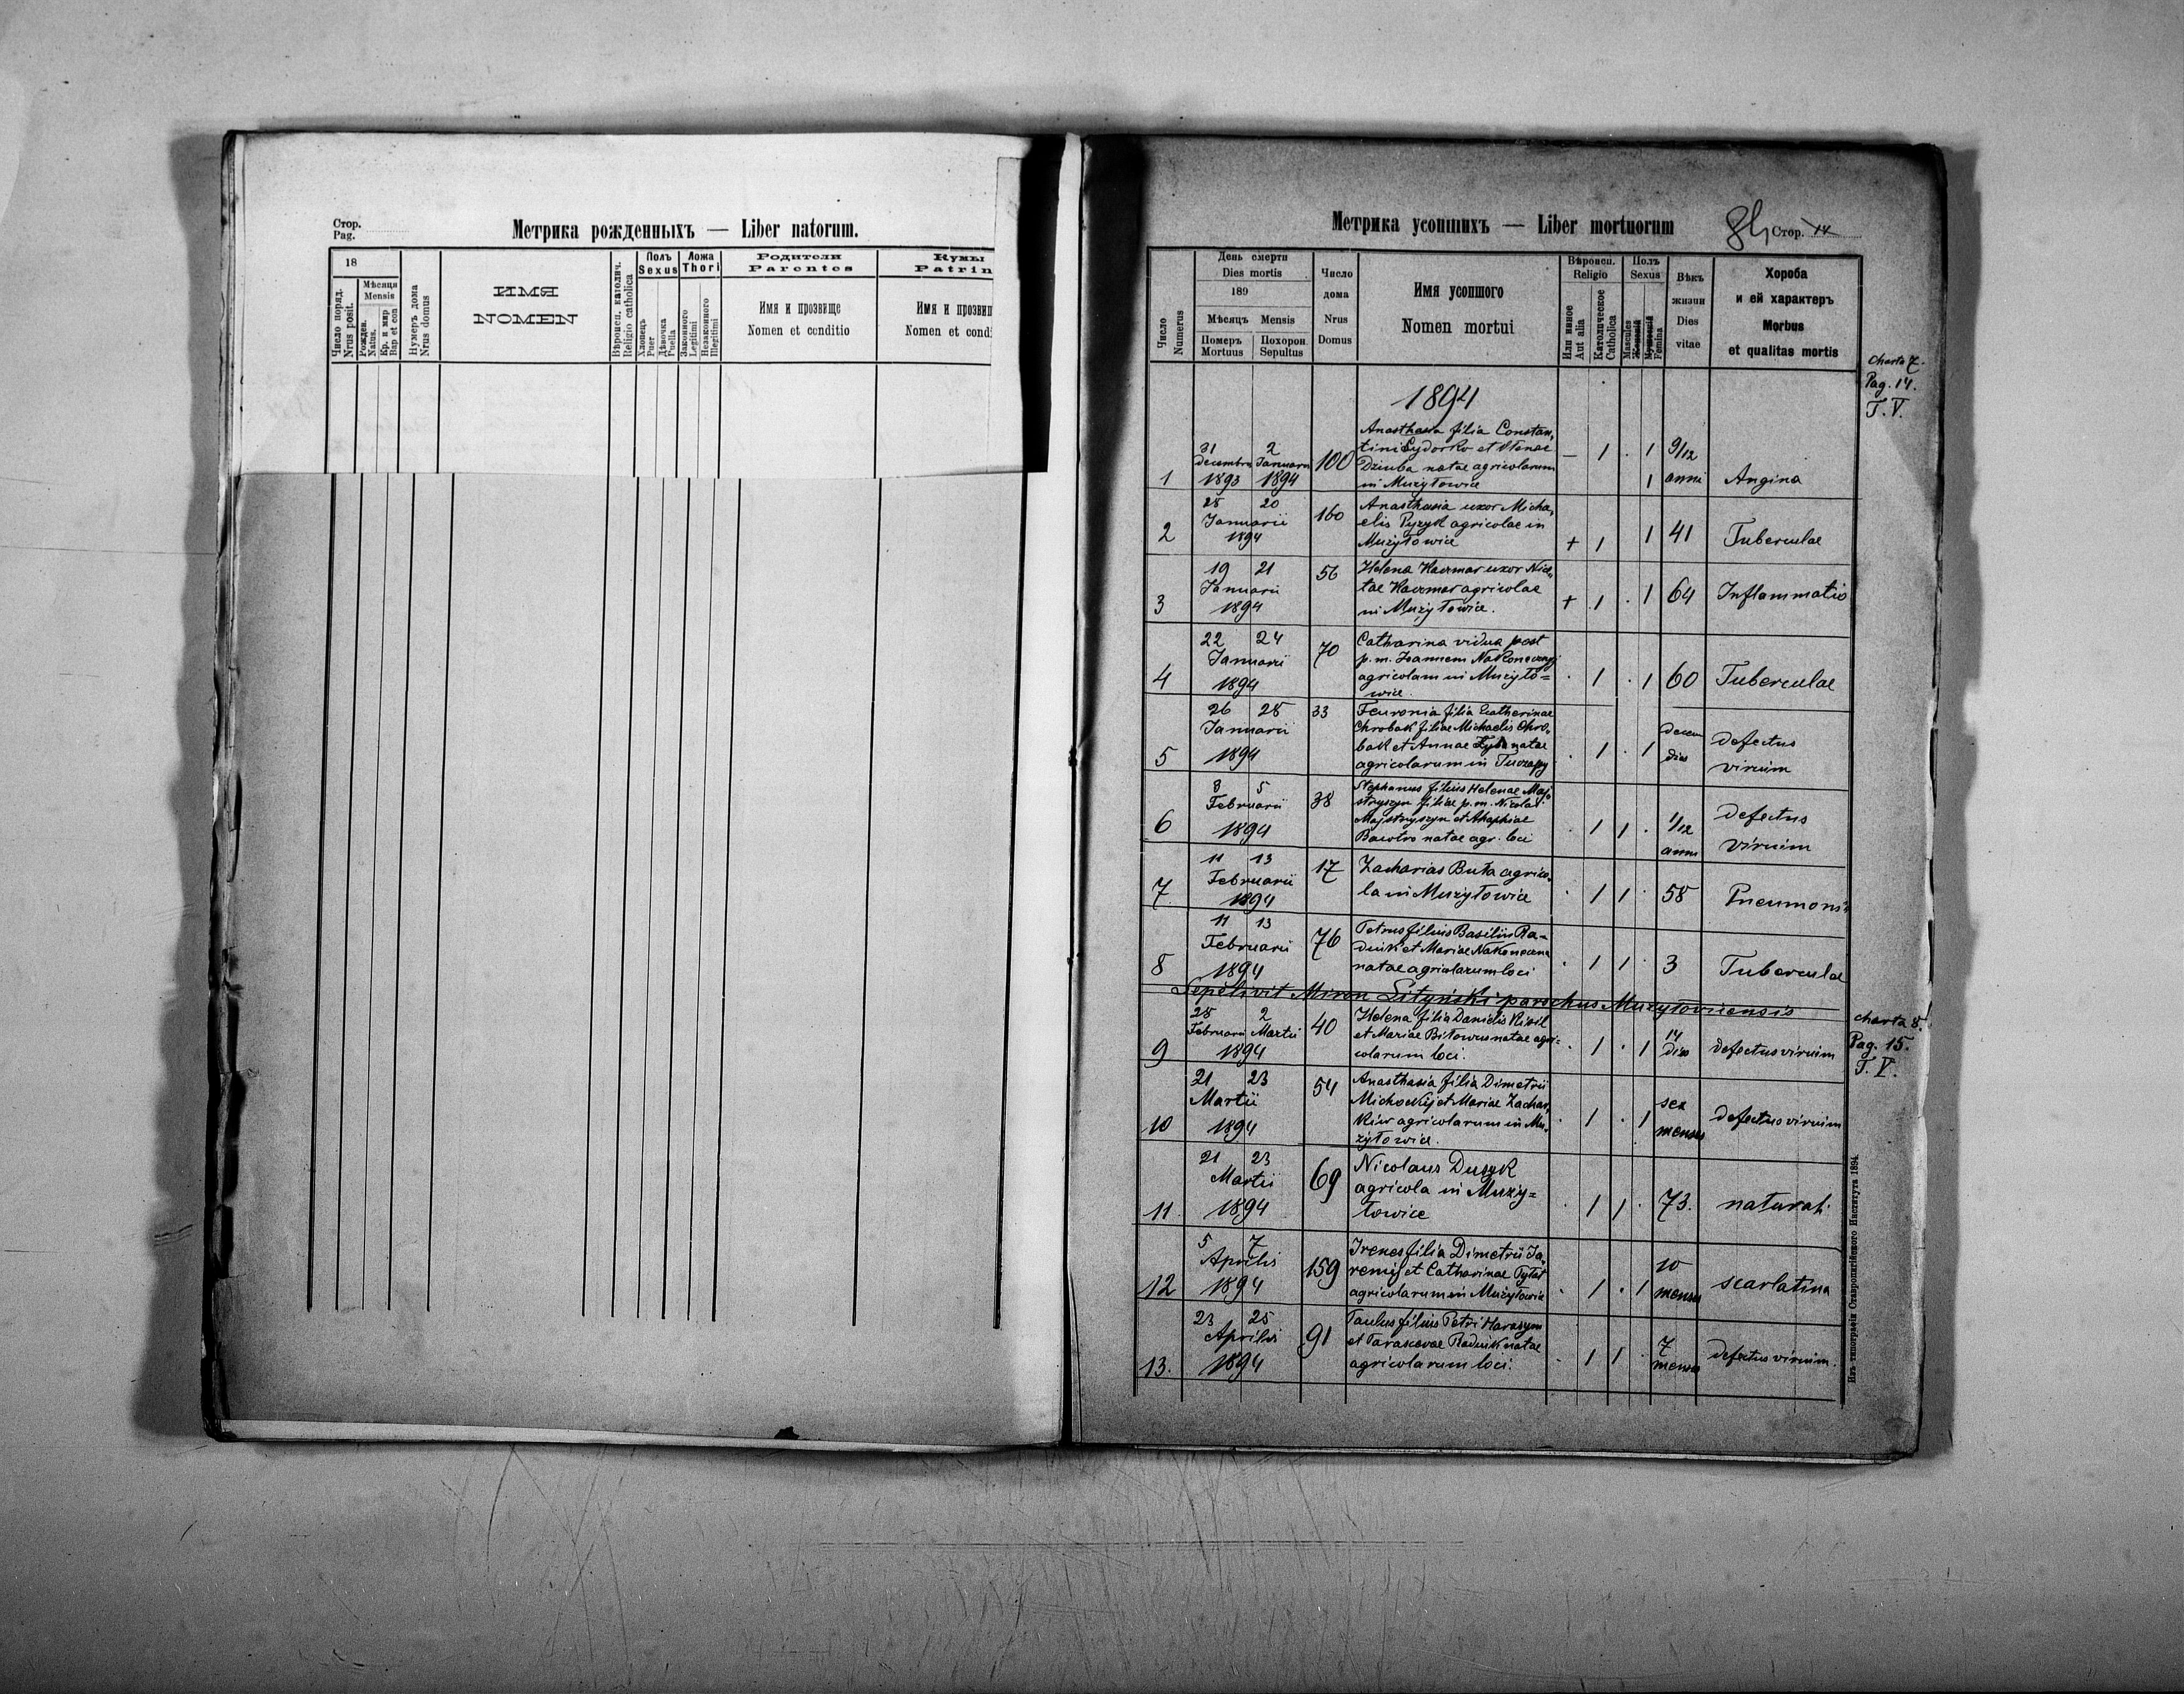 Стор.
Pag.
Метрика рожденныхъ — Liber natorum.
18
Число поряд.
Nrus posit.
Мѣсяця
Mensis
Рожден.
Natus.
Кр. и мир
Bap et con
Нумеръ дома
Nrus domus
ИМЯ
NOMEN
Вѣроисп. католич.
Religio catholica
Полъ
Sexus
Хлопець
Puer
Дѣвочка
Puella
Ложа
Thori
Законного
Legitimi
Незаконного
Illegitimi
Родители
Parentes
Имя и прозвище
Nomen et conditio
Кумы
Patrin
Имя и прозвищ
Nomen et condi
Метрика усопшихъ — Liber mortuorum
Стор. 14
Число
Numerus
День смерти
Dies mortis
189
Мѣсяцъ Mensis
Померъ
Mortuus
Похорон.
Sepultus
Число
дома
Nrus
Domus
Имя усопшого
Nomen mortui
Вѣроисп.
Religio
Или иное
Aut alia
Католическое
Catholica
Полъ
Sexus
Masculus
Femina
Вѣкъ
жизни
Dies
vitae
Хороба
и ей характеръ
Morbus
et qualitas mortis
charta 7.
Pag. 14.
T. V.
1894
1
31 2
Decembris Januarii
1893 1894
100
Anasthasia filia Constan,
tini Sydorko et
Dziuba natae agricolarum
in Muzyłowice
– 1 . 1
1
9/12
anni
Angina
2
28 20
Januarii
1894
160
Anasthasia uxor Micha,
elis Pyzyk agricolae in
Muzyłowice
+ 1 1
41
Tuberculae
3
19 21
Januarii
1894
56
Helena Kaczmar uxor Nice,
tae Kaczmar agricolae
in Muzyłowice.
+ 1 . 1
64
Inflammatio
4
22 24
Januarii
1894
70
Catharina vidua post
p. m. Joannem Nakoneczny
agricolam in Muzyło=
wice.
. 1 . 1
60
Tuberculae
5
26 28
Januarii
1894
33
Feuronia filia Catherinae
Chrobak filiae Michaelis Chro,
bak et Annae natae
agricolarum in
. 1 . 1
decem
dies
defectus
virium
6
3 5
Februarii
1894
38
Stephanus filius Helenae Maj,
stryszyn filiae p. m. Nicolai
Majstryszyn et Ahaphiae
natae agr. loci
. 1 1 .
1/12
anni
defectus
virium
7
11 13
Februarii
1894
17
Zacharias Buta agrico,
la in Muzyłowice
. 1 1 .
58
Pneumonia
8
11 13
Februarii
1894
76
Petrus filius Basilius Ra-
duik et Mariae Nakoneczna
natae agricolarum loci
. 1 1 .
3
Tuberculae
Sepelivit Miron Lityński parochus Muzyłovicensis
charta 8.
Pag. 15.
T. V.
9
28 2
Februarii Martii
1894
40
Helena filia Danielis Kisil
et Mariae natae agri-
colarum loci.
. 1 . 1
14
dies
defectus virium
10
21 23
Martii
1894
54
Anasthasia filia Dimetrii
Michockij et Mariae Zachar,
kiw agricolarum in Mu,
zyłowice.
. 1 . 1
sex
menses
defectus virium
11.
21 23
Martii
1894
69
Nicolaus Dusyk
agricola in Muzy=
łowice
. 1 1 .
73.
naturali
12
5 7
Aprilis
1894
159
Irenes filia Dimetrii Ja,
remij et Catharinae Pyłat
agricolarum in Muzyłowice
. 1 . 1
10
menses
scarlatina
13.
23 25
Aprilis
1894
91
Paulus filius Petri Harasym
et Parascevae Raduik natae
agricolarum loci.
. 1 1 .
7
menses
defectus virium.
Изъ типографіи Ставропигійского Института 1894.